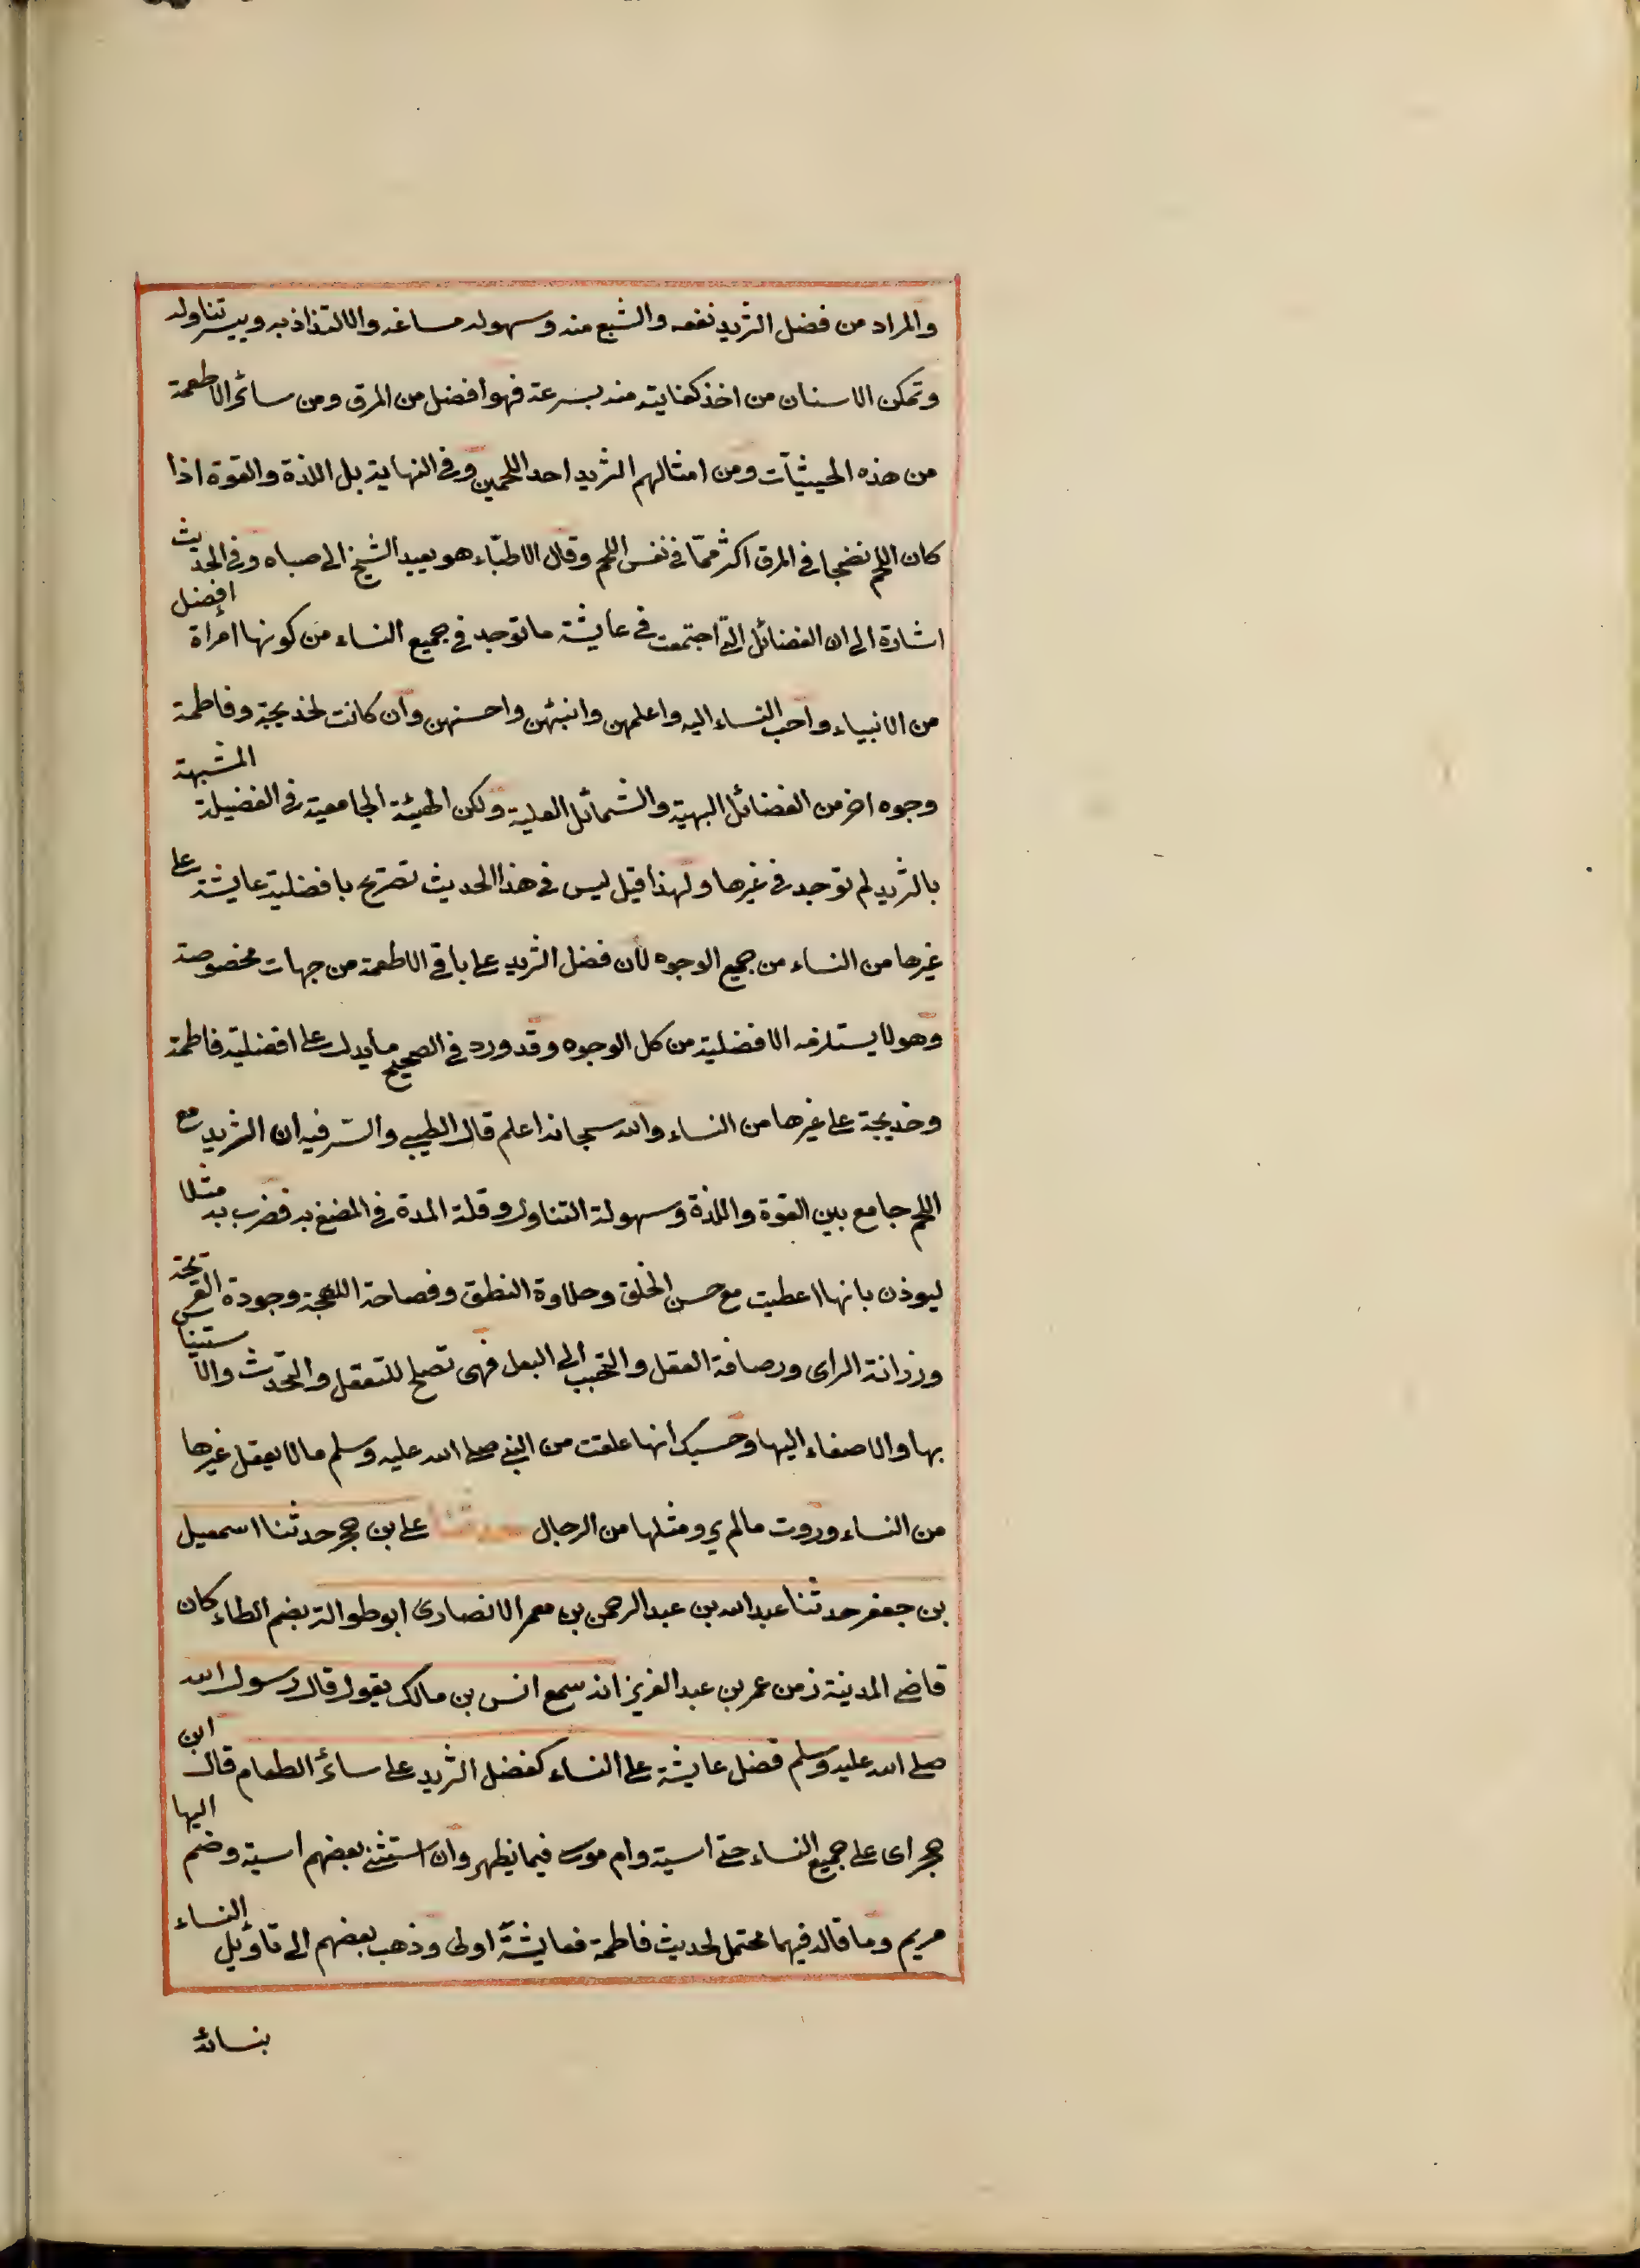 والمراد من فضل الثريد نفعه والشبع منه وسهوله مساغه والالتذاذ به وييسر تناوله
وتمكن الاسنان من اخذ كفايته منه بسرعة فهو افضل من المرق ومن سائر الاطعمة
من هذه الحيثيات ومن امثالهم الثريد احد اللحمين وفي النهاية بل اللذة والقوة اذا
كان اللحم نضجا في المرق اكثر مما في نفس اللحم وقال الاطباء هو يعيد الشيخ الى صباه وفي الحديث
اشارة الى ان الفضائل التي اجتمعت في عايشة ما توجد في جميع النساء من كونها امراة افضل
من الانبياء واحب النساء اليه واعلمهن وانبئهن واحسنهن وان كانت لخديجة وفاطمة
وجوه اخر من الفضائل البهية والشمائل العلية ولكن الهيئة الجامعية في الفضيلة المشبهة
بالثريد لم توجد في غيرها ولهذا قيل ليس في هذا الحديث تصريح بافضلية عايشة على
غيرها من النساء من جميع الوجوه لان فضل الثريد على باقي الاطعمة من جهات مخصوصة
وهو لا يستلزم الافضلية من كل الوجوه وقد ورد في الصحيح ما يدل على افضلية فاطمة
وخديجة على غيرها من النساء والله سبحانه اعلم قال الطيبي والسر فيه ان الثريد مع
اللحم جامع بين القوة واللذة وسهولة التناول وقلة المدة في المضغ به فضرب به مثلا
ليوذن بانها اعطيت مع حسن الخلق وحلاوة النطق وفصاحة اللهجة وجودة القريحة
ورزانة الراى ورصافة العقل والتحبب الى البعل فهى تصلح للتعقل والتحدث والاستيناس
بها والاصغاء اليها وحسبك انها علقت من النبي صلى الله عليه وسلم ما لا يعقل غيرها
من النساء وروت ما لم يرو مثلها من الرجال حدثنا علي بن حجر حدثنا اسمعيل
بن جعفر حدثنا عبد الله بن عبد الرحمن بن معمر الانصارى ابو طوالة بضم الطاء كان
قاضي المدينة زمن عمر بن عبد العزيز انه سمع انس بن مالك يقول قال رسول الله
صلى الله عليه وسلم فضل عايشة على النساء كفضل الثريد على سائر الطعام قال ابن
حجر اى على جميع النساء حتى اسية وام موسى فيما يظهر وان استثنى بعضهم اسية وضم اليها
مريم وما قاله فيهما محتمل لحديث فاطمة فعايشة اولى وذهب بعضهم الى تاويل النساء
بنسائه